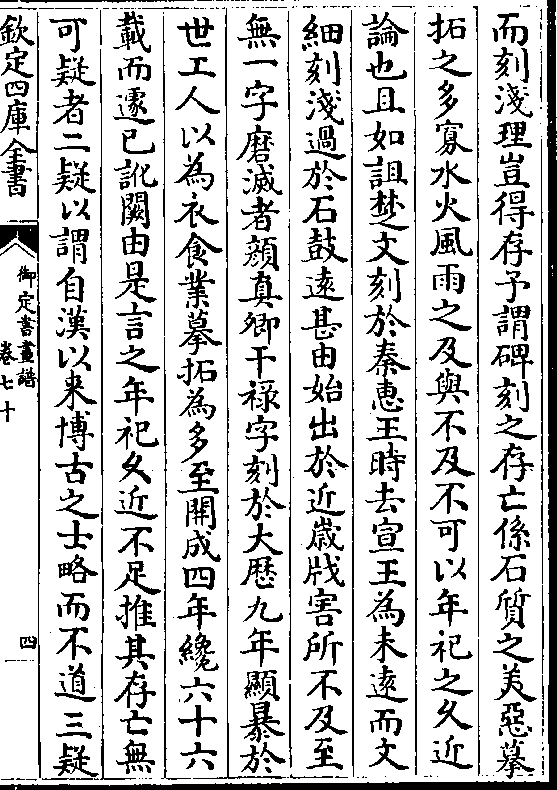 而刻淺理豈得存予謂碑刻之存亡係石質之美惡摹
拓之多寡水火風雨之及與不及不可以年祀之久近
論也且如詛楚文刻於秦惠王時去宣王為未遠而文
細刻淺過於石鼓遠甚由始出於近嵗戕害所不及至
無一字磨滅者顔真卿干禄字刻於大歴九年顯暴於
世工人以為衣食業摹拓為多至開成四年纔六十六
載而遽已訛闕由是言之年祀久近不足推其存亡無
可疑者二疑以謂自漢以来博古之士略而不道三疑
欽定四庫全書
御定書畫譜
卷七十
四